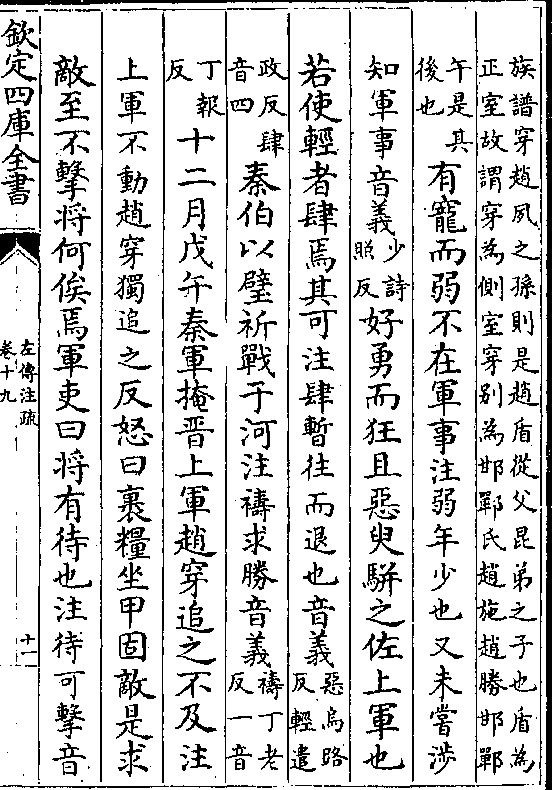 族譜穿趙夙之孫則是趙盾從父昆弟之子也盾為
正室故謂穿為側室穿别為邯鄲氏趙旃趙勝邯鄲
午是其
後也
有寵而弱不在軍事注弱年少也又未嘗渉
知軍事音義
少詩
照反
好勇而狂且惡臾駢之佐上軍也
若使輕者肆焉其可注肆暫往而退也音義
惡烏路
反輕遣
政反肆
音四
秦伯以璧祈戰于河注禱求勝音義
禱丁老
反一音
丁報
反
十二月戊午秦軍掩晋上軍趙穿追之不及注
上軍不動趙穿獨追之反怒曰裹糧坐甲固敵是求
敵至不擊將何俟焉軍吏曰將有待也注待可擊音
欽定四庫全書
左傳注疏
卷十九
十一